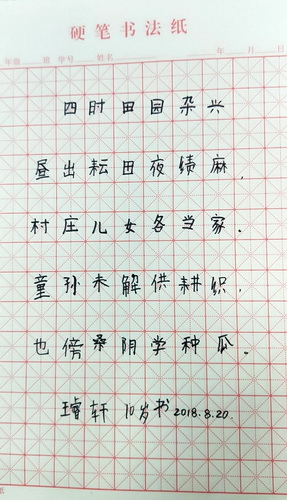 硬笔书法纸
年级 班 学号 姓名 年 月 日
四时田园杂兴
昼出耘田夜绩麻，
村庄儿女各当家。
童孙未解供耕织，
也傍桑阴学种瓜。
王睿轩 10岁书 2018.8.20.